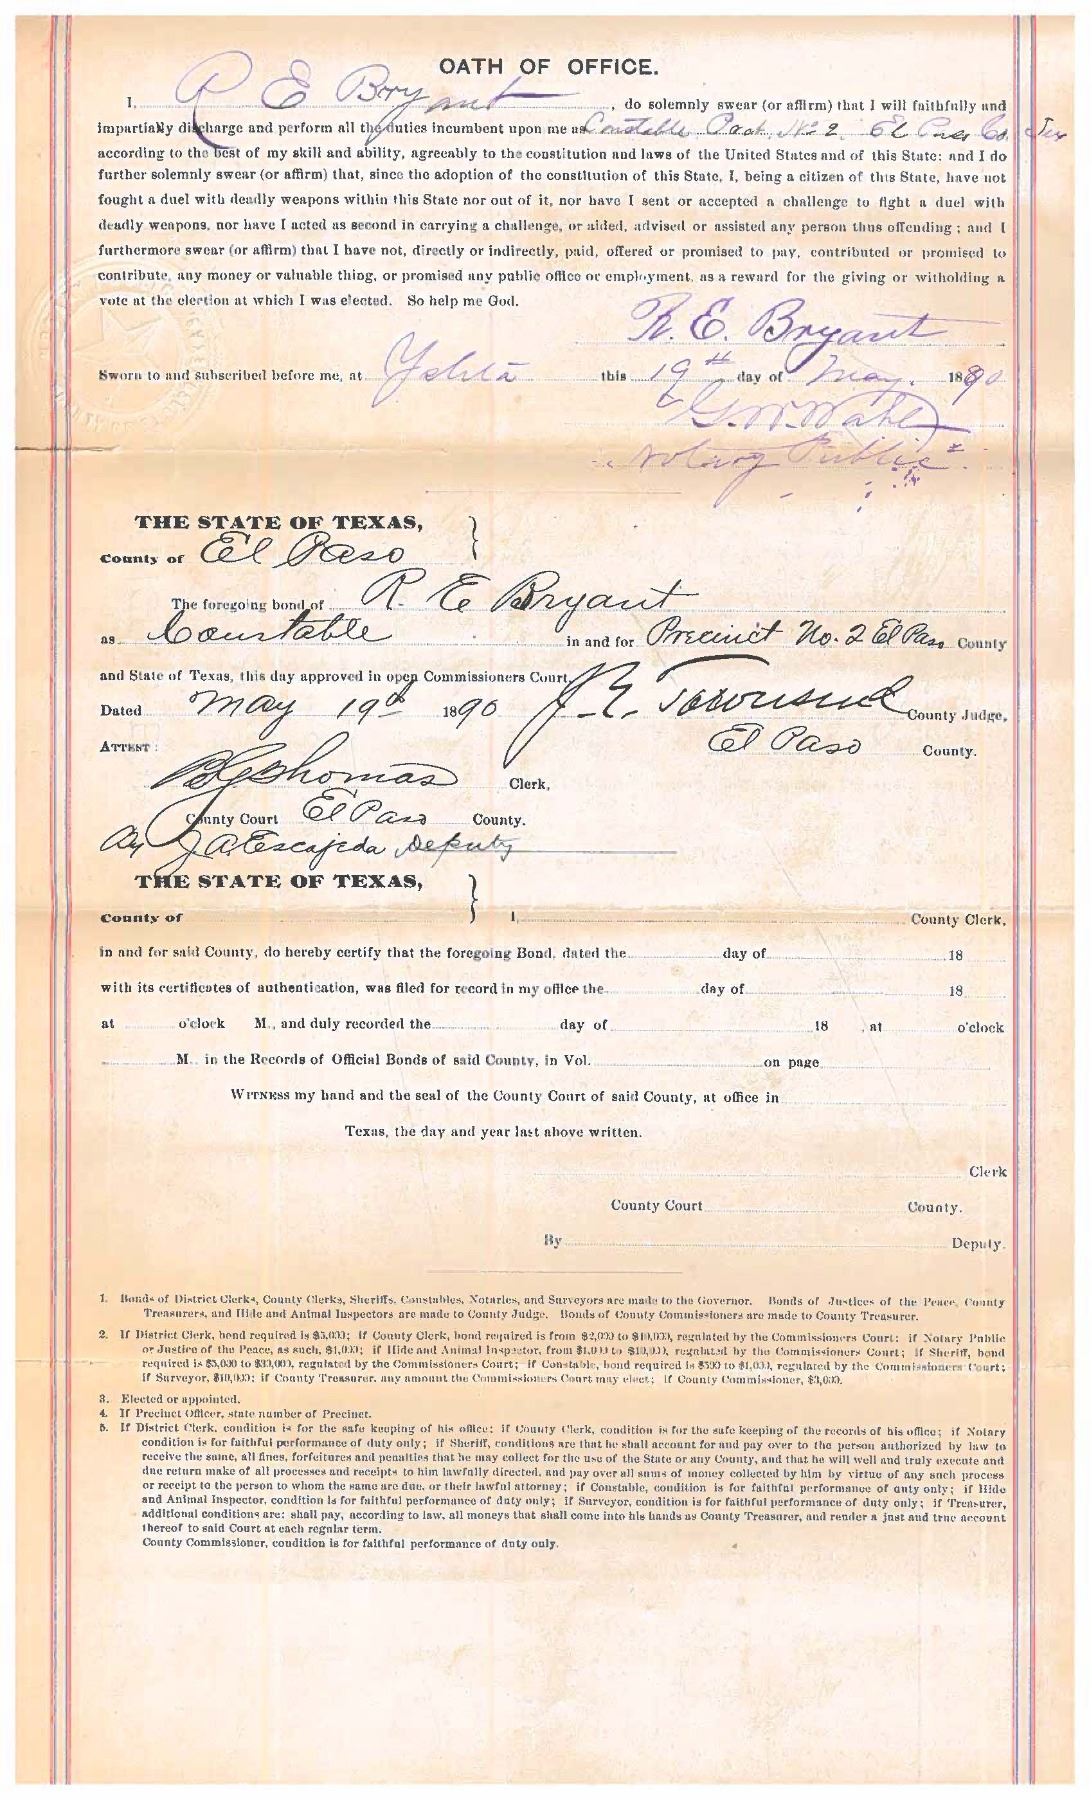 OATH OF OFFICE.
I, R E Bryant, do solemnly swear (or affirm) that I will faithfully and
impartially discharge and perform all the duties incumbent upon me as Constable Pect. No 2. El Paso Co. Tex
according to the best of my skill and ability, agreeably to the constitution and laws of the United States and of this State: and I do
further solemnly swear (or affirm) that, since the adoption of the constitution of this State, I, being a citizen of this State, have not
fought a duel with deadly weapons within this State nor out of it, nor have I sent or accepted a challenge to fight a duel with
deadly weapons, nor have I acted as second in carrying a challenge, or aided, advised or assisted any person thus offending; and I
furthermore swear (or affirm) that I have not, directly or indirectly, paid, offered or promised to pay, contributed or promised to
contribute, any money or valuable thing, or promised any public office or employment, as a reward for the giving or witholding a
vote at the election at which I was elected. So help me God.
R. E. Bryant
Sworn to and subscribed before me, at Ysleta this 19th day of May. 1890
G. W. Wahl
Notary Public
THE STATE OF TEXAS,
County of El Paso
The foregoing bond of R. E Bryant
as Constable in and for Precinct No. 2 El Paso County
and State of Texas, this day approved in open Commissioners Court,
Dated May 19th 1890 J. R. Townsend County Judge,
El Paso County.
ATTEST:
Thomas Clerk,
County Court El Paso County.
By J. A. Escajeda Deputy
THE STATE OF TEXAS,
County of I, County Clerk,
in and for said County, do hereby certify that the foregoing Bond, dated the day of 18
with its certificates of authentication, was filed for record in my office the day of 18
at o'clock M., and duly recorded the day of 18 , at o'clock
M., in the Records of Official Bonds of said County, in Vol. on page
WITNESS my hand and the seal of the County Court of said County, at office in
Texas, the day and year last above written.
Clerk
County Court County.
By Deputy.
1. Bonds of District Clerks, County Clerks, Sheriffs, Constables, Notaries, and Surveyors are made to the Governor. Bonds of Justices of the Peace, County
Treasurers, and Hide and Animal Inspectors are made to County Judge. Bonds of County Commissioners are made to County Treasurer.
2. If District Clerk, bond required is $5,000; if County Clerk, bond required is from $2,000 to $10,000, regulated by the Commissioners Court; if Notary Public
or Justice of the Peace, as such, $1,000; if Hide and Animal Inspector, from $1,000 to $10,000, regulated by the Commissioners Court; if Sheriff, bond
required is $5,000 to $30,000, regulated by the Commissioners Court; if Constable, bond required is $500 to $1,000, regulated by the Commissioners Court;
if Surveyor, $10,000; if County Treasurer, any amount the Commissioners Court may elect; if County Commissioner, $3,000.
3. Elected or appointed.
4. If Precinct Officer, state number of Precinct.
5. If District Clerk, condition is for the safe keeping of his office; if County Clerk, condition is for the safe keeping of the records of his office; if Notary
condition is for faithful performance of duty only; if Sheriff, conditions are that he shall account for and pay over to the person authorized by law to
receive the same, all fines, forfeitures and penalties that he may collect for the use of the State or any County, and that he will well and truly execute and
due return make of all processes and receipts to him lawfully directed, and pay over all sums of money collected by him by virtue of any such process
or receipt to the person to whom the same are due, or their lawful attorney; if Constable, condition is for faithful performance of duty only; if Hide
and Animal Inspector, condition is for faithful performance of duty only; if Surveyor, condition is for faithful performance of duty only; if Treasurer,
additional conditions are: shall pay, according to law, all moneys that shall come into his hands as County Treasurer, and render a just and true account
thereof to said Court at each regular term.
County Commissioner, condition is for faithful performance of duty only.